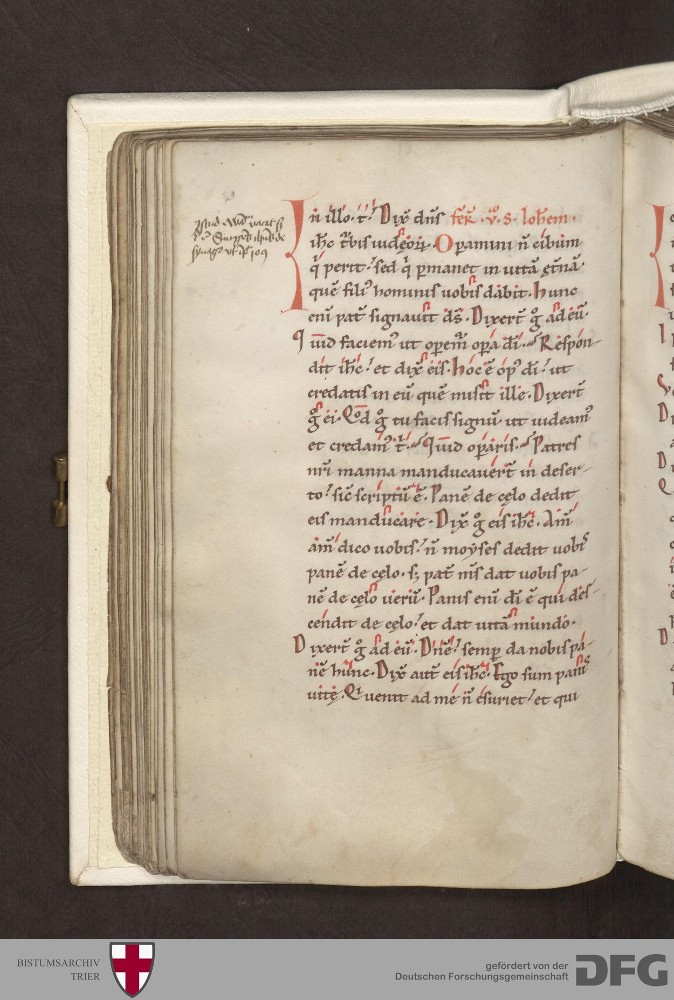 In illo · t̄ · Dix̄ dn̄s fer̄ · v̄ · S · Ioh̄em ·
ih̄c t͛bis iudęor̄ · Operamini n̄ cibūm
q̄ perit · sed q̄ p̄manet in uitā ęt̄nā ·
quē fili᷒ hominis uobis dabit · hunc
enī pat̄ signauit d̄s · Dixer̄t g̊ ad eū ·
Quid faciem᷒ ut operem̄ opera dī · Respon-
dit ih̄c · et dix̄ eis · hoc ē op᷒ dī · ut
credatis in eū quē misit ille · Dixer̄t
g̊ ei · Qd̄ g̊ tu facis signū · ut uideam᷒
et credam᷒ t̄ · Quid operaris · Patres
nr̄i manna manducauer̄t in deser-
to · sic̄ scriptū ē · Panē de cęlo dedit
eis manducare · Dix̄ g̊ eis ih̄c · Am̄
am̄ dico uobis · n̄ moyses dedit uobis
panē de cęlo · s; pat̄ ms̄ dat uobis pa-
nē de cęlo uerū · Panis enī dī ē qui des-
cendit de cęlo · et dat uitā mundo ·
Dixer̄t g̊ ad eū · Dn̄e · semp̄ da nobis pa-
nē hunc · Dix̄ aut̄ eis ih̄c · Ego sum panis
uitę · Qi uenit ad me n̄ esuriet · et qui
BISTUMSARCHIV
TRIER
gefördert von der
Deutschen Forschungsgemeinschaft
DFG